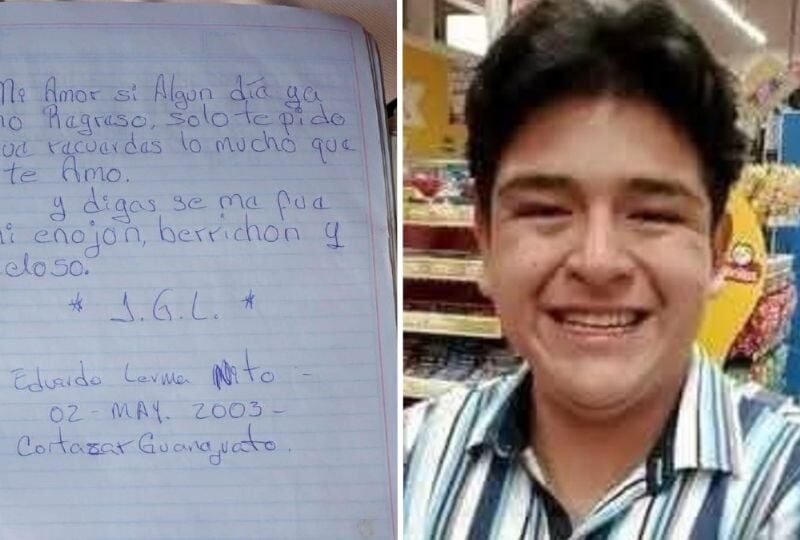 Mi Amor si Algun día ya
no Ragraso, solo te pido
qua racuardas lo mucho qua
te Amo.
y digas se ma fua
mi enojon, berrichon y
celoso.
* J.G.L. *
Eduardo Lerma Nito :-
02 - MAY. 2003 -
Cortazar Guanajuato.